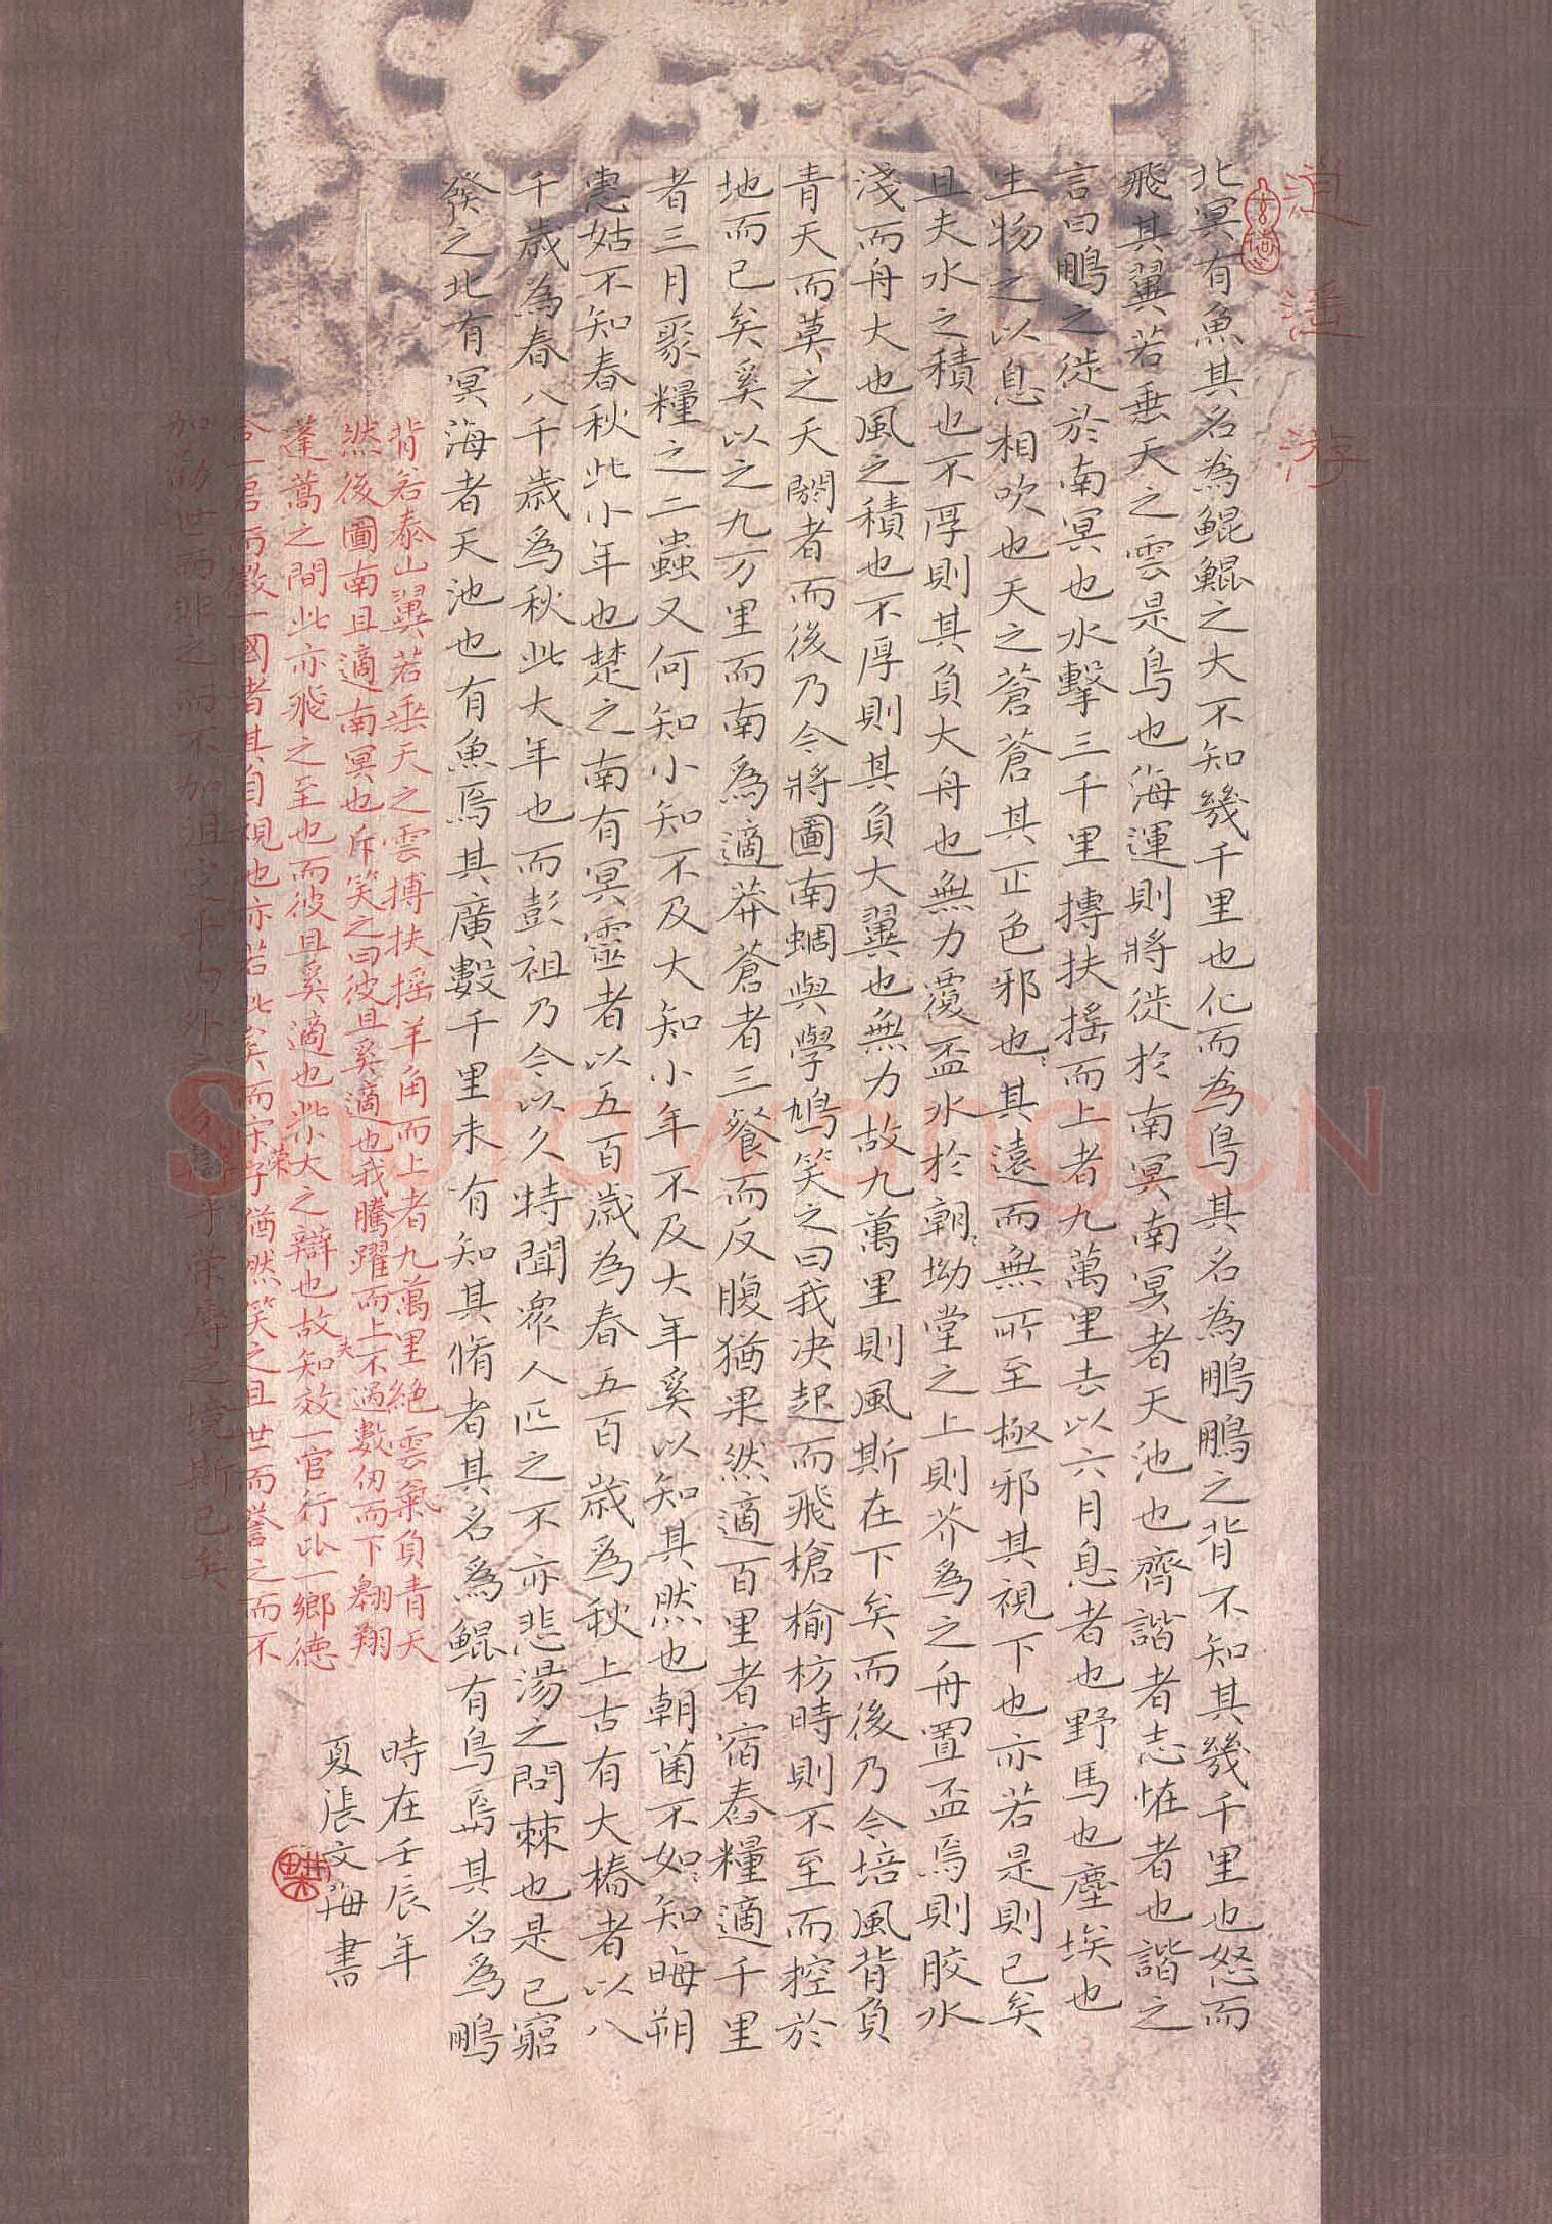 逍遥游
北冥有魚其名為鯤鯤之大不知幾千里也化而為鳥其名為鵬鵬之背不知其幾千里也怒而
飛其翼若垂天之雲是鳥也海運則將徙於南冥南冥者天池也齊諧者志怪者也諧之
言曰鵬之徙於南冥也水擊三千里摶扶搖而上者九萬里去以六月息者也野馬也塵埃也
生物之以息相吹也天之蒼蒼其正色邪也其遠而無所至極邪其視下也亦若是則已矣
且夫水之積也不厚則其負大舟也無力覆盃水於朝坳堂之上則芥為之舟置盃焉則膠水
淺而舟大也風之積也不厚則其負大翼也無力故九萬里則風斯在下矣而後乃今培風背負
青天而莫之夭閼者而後乃今將圖南蜩與學鳩笑之曰我决起而飛槍榆枋時則不至而控於
地而已矣奚以之九万里而南為適莽蒼者三餐而反腹猶果然適百里者宿舂糧適千里
者三月聚糧之二蟲又何知小知不及大知小年不及大年奚以知其然也朝菌不如知晦朔
蟪姑不知春秋此小年也楚之南有冥靈者以五百歲為春五百歲為秋上古有大椿者以八
千歲為春八千歲為秋此大年也而彭祖乃今以久特聞眾人匹之不亦悲湯之問棘也是已窮
發之北有冥海者天池也有魚焉其廣數千里未有知其脩者其名為鯤有鳥焉其名為鵬
背若泰山翼若垂天之雲摶扶搖羊角而上者九萬里絕雲氣負青天
然後圖南且適南冥也斥笑之曰彼且奚適也我騰躍而上不過數仞而下翱翔
蓬蒿之間此亦飛之至也而彼且奚適也此小大之辯也故夫知效一官行比一鄉德
合一君而徵一國者其自視也亦若此矣而宋榮子猶然笑之且世而譽之而不
加勸世而非之而不加沮定乎内外之分辯乎榮辱之境斯已矣
時在壬辰年
夏張文海書
ShufaWang.CN